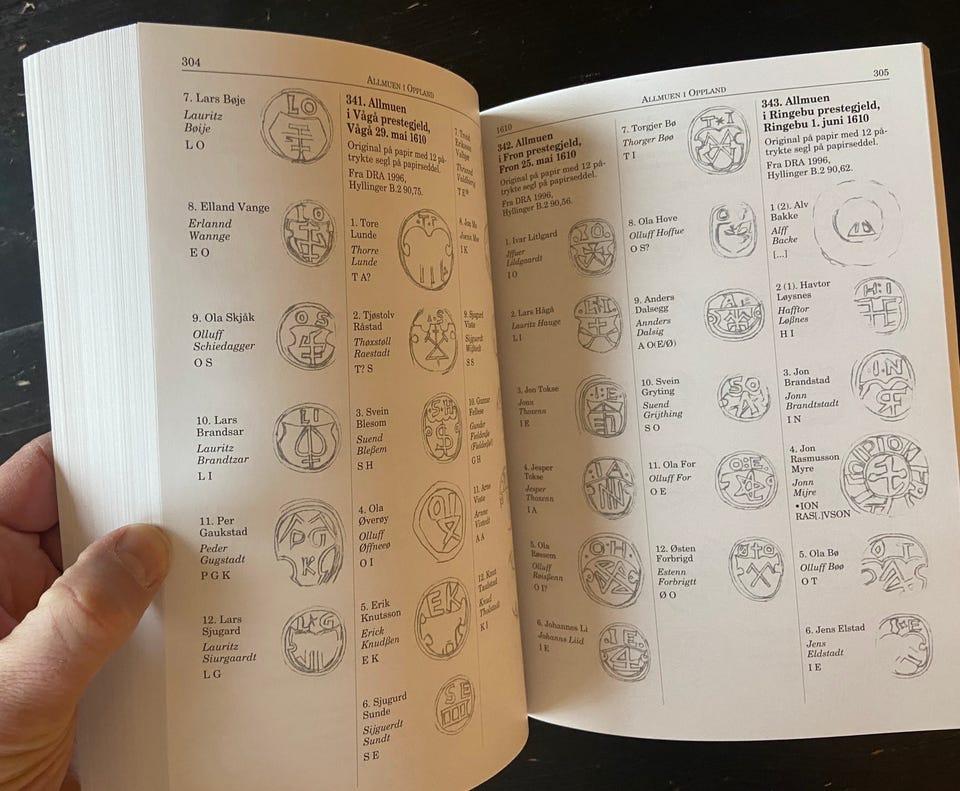 304
ALLMUEN I OPPLAND
7. Lars Bøje
Lauritz
Böije
L O
8. Elland Vange
Erlannd
Wannge
E O
9. Ola Skjåk
Olluff
Schiedagger
O S
10. Lars
Brandsar
Lauritz
Brandtzar
L I
11. Per
Gaukstad
Peder
Gugstadt
P G K
12. Lars
Sjugard
Lauritz
Siurgaardt
L G
341. Allmuen
i Vågå prestegjeld,
Vågå 29. mai 1610
Original på papir med 12 på-
trykte segl på papirseddel.
Fra DRA 1996,
Hyllinger B.2 90,75.
1. Tore
Lunde
Thorre
Lunde
T A?
2. Tjøstolv
Råstad
Thøxstøll
Raestadt
T? S
3. Svein
Blesom
Suend
Bleßem
S H
4. Ola
Øverøy
Olluff
Øffneeø
O I
5. Erik
Knutsson
Erick
Knudßen
E K
6. Sjugurd
Sunde
Sijguerdt
Sundt
S E
7. Trond
Eriksson
Valbjør
I K
9. Sjugurd
Viste
Sijguerdt
S S
10. Gunnar
Gunder
G H
11. Arne
Viste
Arnne
Vistedt
A A
12. Knut
Knud
K I
305
ALLMUEN I OPPLAND
1610
342. Allmuen
i Fron prestegjeld,
Fron 25. mai 1610
Original på papir med 12 på-
trykte segl på papirseddel.
Fra DRA 1996,
Hyllinger B.2 90,56.
1. Ivar Litlgard
Jffuer
Lildgaardt
I O
2. Lars Hågå
Lauritz Hauge
L I
3. Jon Tokse
Jonn
Thoxenn
I E
4. Jesper
Tokse
Jesper
Thoxenn
I A
5. Ola
Røssem
Olluff
Røisßenn
O I?
6. Johannes Li
Johanns Liid
I E
7. Torgjer Bø
Thorger Bøø
T I
8. Ola Hove
Olluff Hoffue
O S?
9. Anders
Dalsegg
Annders
Dalsig
A O(E/Ø)
10. Svein
Gryting
Suend
Grijthing
S O
11. Ola For
Olluff For
O E
12. Østen
Forbrigd
Estenn
Forbrigtt
Ø O
343. Allmuen
i Ringebu prestegjeld,
Ringebu 1. juni 1610
Original på papir med 12 på-
trykte segl på papirseddel.
Fra DRA 1996,
Hyllinger B.2 90,62.
1 (2). Alv
Bakke
Alff
Backe
[...]
2 (1). Havtor
Løysnes
Hafftor
Løßnes
H I
3. Jon
Brandstad
Jonn
Brandtstadt
I N
4. Jon
Rasmusson
Myre
Jonn
Mijre
•ION
RAS[.]VSON
5. Ola Bø
Olluff Bøø
O T
6. Jens Elstad
Jens
Eldstadt
I E